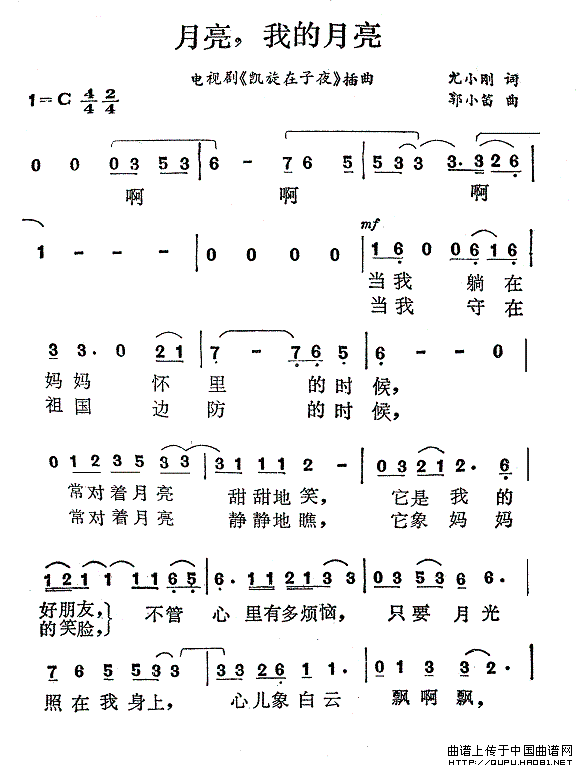 月亮，我的月亮
电视剧《凯旋在子夜》插曲
尤小刚 词
1=C 4/4 2/4
郭小笛 曲
0 0 0 3 5 3 | 6 - 7 6 5 | 5 3 3 3 3. 3 2 6 |
啊 啊 啊
mf
1 - - - | 0 0 0 0 | 1 6 0 0 6 1 6 |
当我 躺在
当我 守在
3 3. 0 2 1 | 7 - 7 6 5 | 6 - - 0 |
妈妈 怀里 的时候，
祖国 边防 的时候，
0 1 2 3 5 3 3 | 3 1 1 1 2 - | 0 3 2 1 2. 6 |
常对着月亮 甜甜地笑， 它是我的
常对着月亮 静静地瞧， 它象妈妈
1 2 1 1 1 1 1 6 5 | 6. 1 1 2 1 3 3 | 0 3 3 5 3 6 6 |
好朋友，} 不管 心里有多烦恼， 只要月光
的笑脸，}
7 6 5 5 2 3 3 | 3 3 2 6 1 1. | 0 1 3 3 2. |
照在我身上， 心儿象白云 飘啊飘，
曲谱上传于中国曲谱网
HTTP://QUPU.HAO81.NET